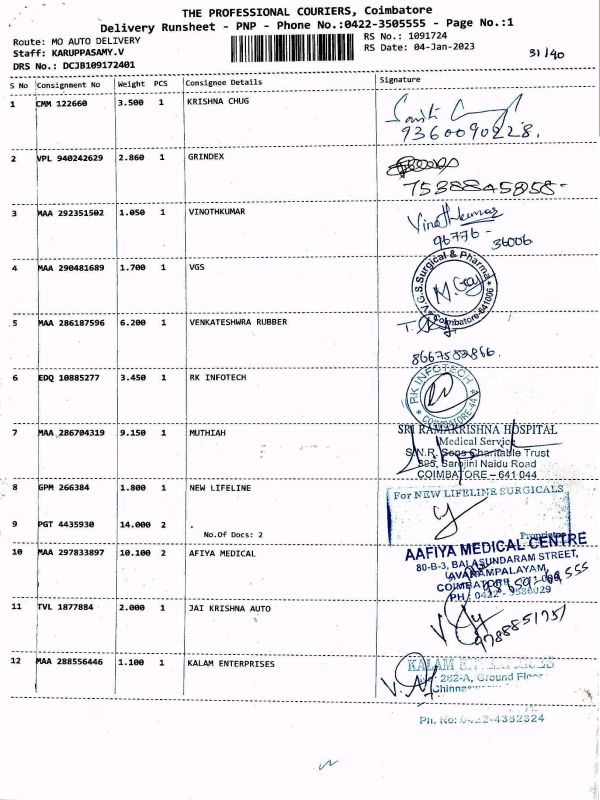 THE PROFESSIONAL COURIERS, Coimbatore
Delivery Runsheet - PNP - Phone No.:0422-3505555 - Page No.:1
Route: MO AUTO DELIVERY
RS No.: 1091724
Staff: KARUPPASAMY.V
RS Date: 04-Jan-2023
31/40
DRS No.: DCJB109172401
S No Consignment No Weight PCS Consignee Details Signature
1 CMM 122660 3.500 1 KRISHNA CHUG
9360090228.
2 VPL 940242629 2.860 1 GRINDEX
7538845858-
3 MAA 292351502 1.050 1 VINOTHKUMAR
Vinothkumar
96776-
36006
4 MAA 290481689 1.700 1 VGS
V.G.S.Surgical & Pharma
Coimbatore-641006
5 MAA 286187596 6.200 1 VENKATESHWRA RUBBER
8667582866.
6 EDQ 10885277 3.450 1 RK INFOTECH
RK INFOTECH
COIMBATORE-44
7 MAA 286704319 9.150 1 MUTHIAH
SRI RAMAKRISHNA HOSPITAL
Medical Service
S.N.R. Sons Charitable Trust
395, Sarojini Naidu Road
COIMBATORE - 641 044
8 GPM 266384 1.800 1 NEW LIFELINE
For NEW LIFELINE SURGICALS
Proprietor
9 PGT 4435930 14.000 2
No.Of Docs: 2
10 MAA 297833897 10.100 2 AFIYA MEDICAL
AAFIYA MEDICAL CENTRE
80-B-3, BALASUNDARAM STREET,
AVARAMPALAYAM,
COIMBATORE
PH: 0422-
11 TVL 1877884 2.000 1 JAI KRISHNA AUTO
9788851751
12 MAA 288556446 1.100 1 KALAM ENTERPRISES
KALAM ENTERPRISES
262-A, Ground Floor
Ph. No: 0422-4382324